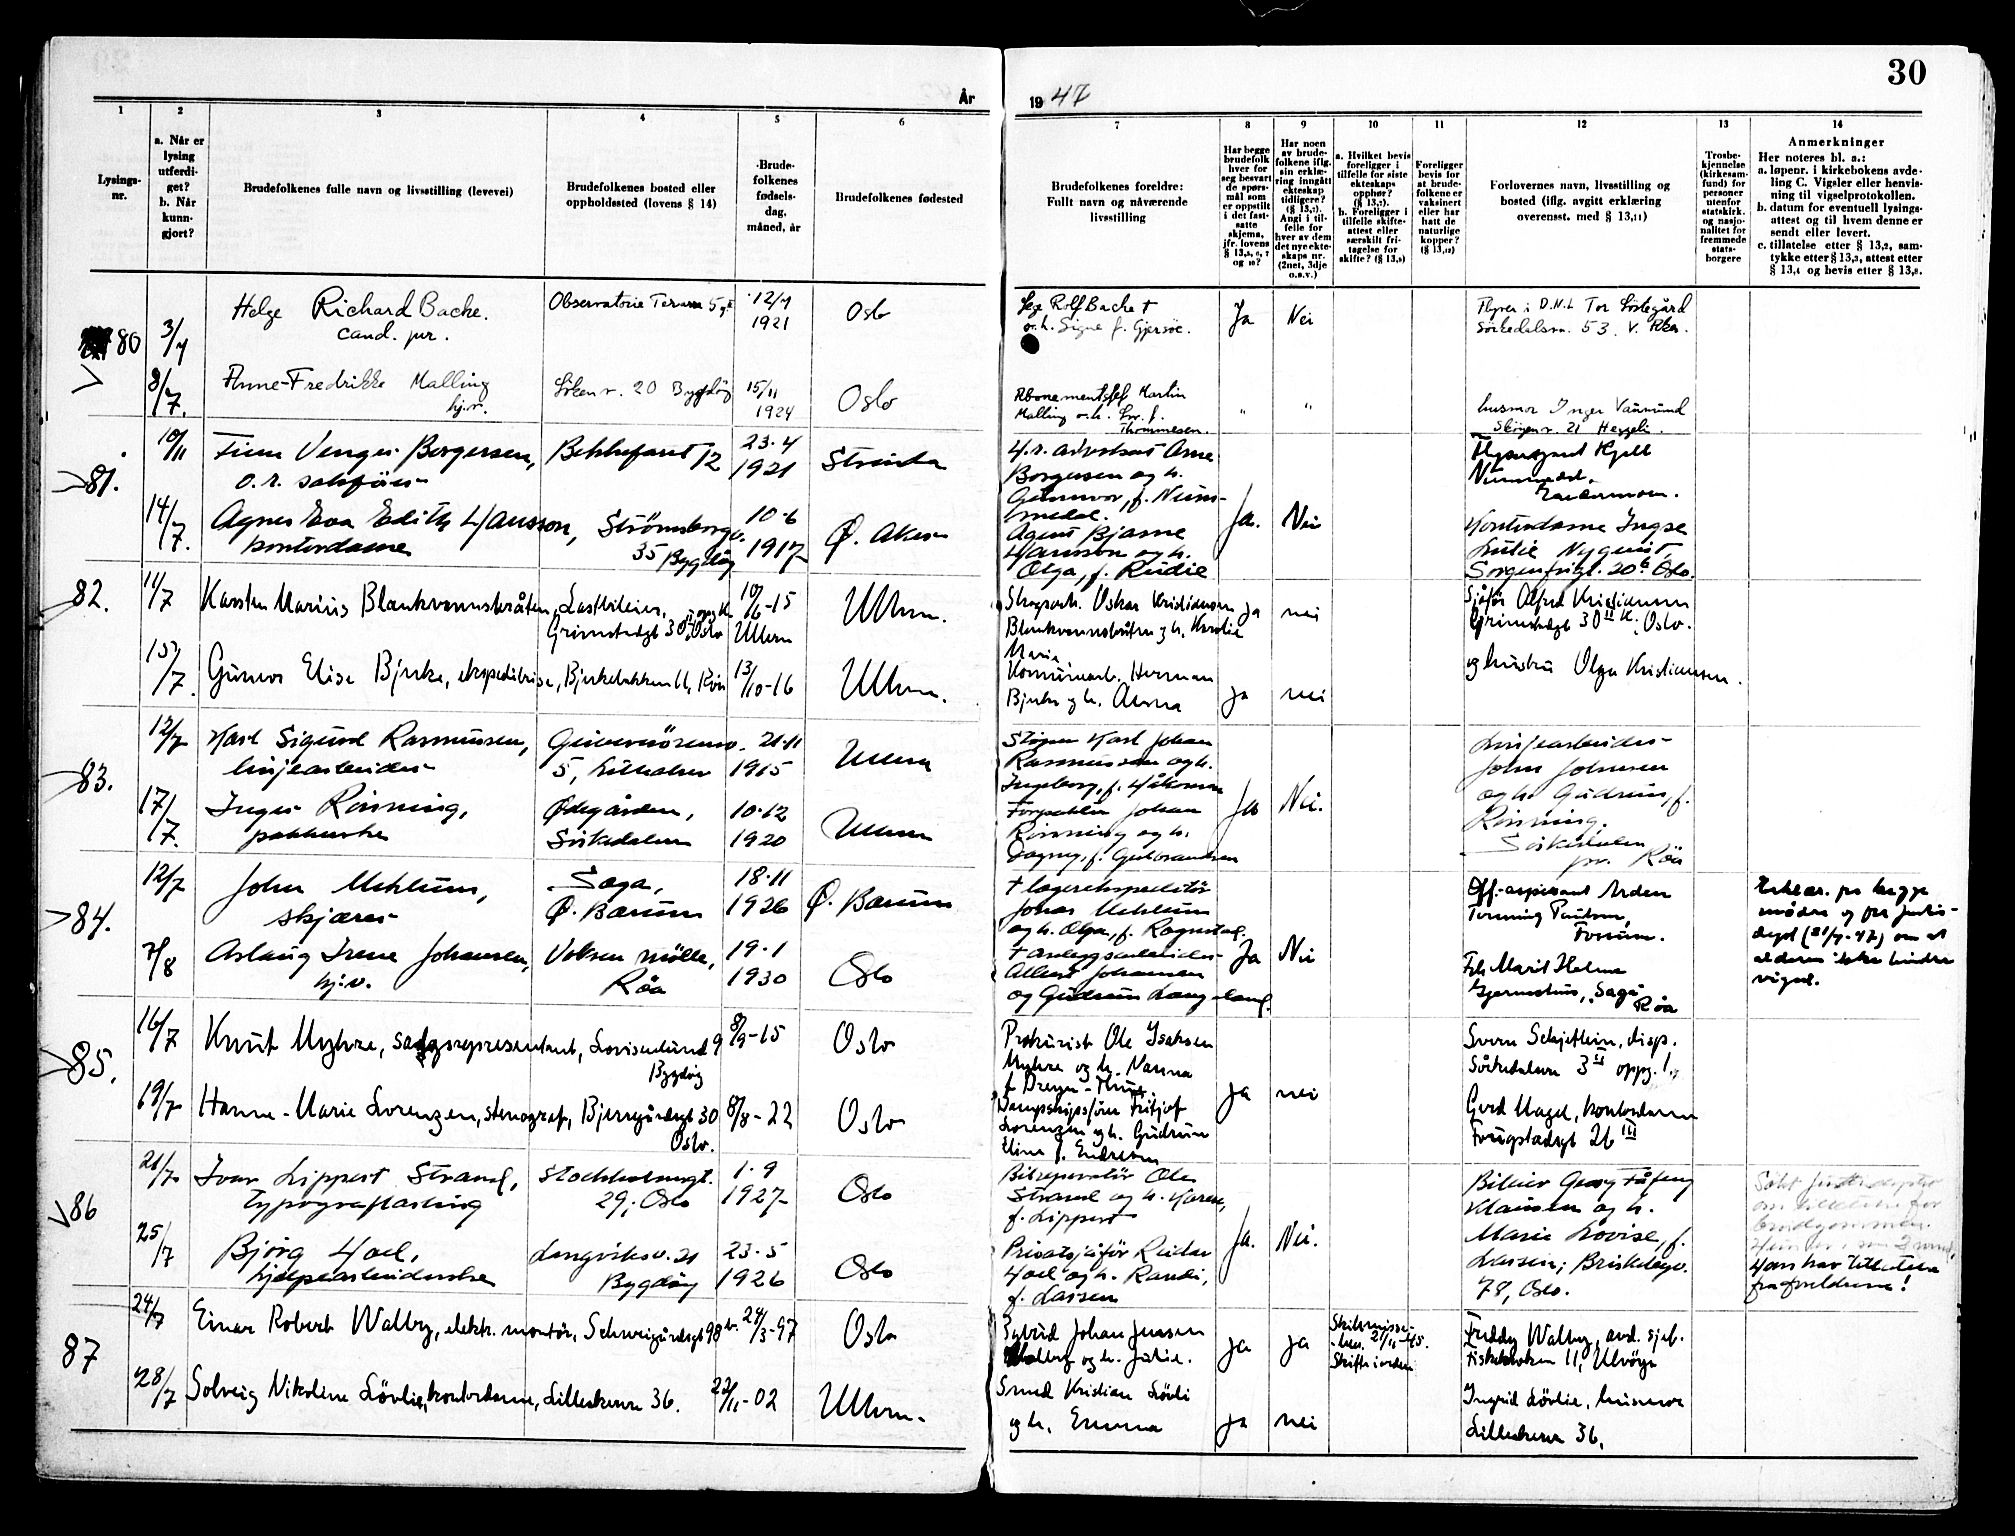 30
År 1947
1
2
3
4
5
6
7
8
9
10
11
12
13
14
Lysings-
nr.
a. Når er
lysing
utferdi-
get?
b. Når
kunn-
gjort?
Brudefolkenes fulle navn og livsstilling (levevei)
Brudefolkenes bosted eller
oppholdssted (lovens § 14)
Brude-
folkenes
fødsels-
dag,
måned, år
Brudefolkenes fødested
Brudefolkenes foreldre:
Fullt navn og nåværende
livsstilling
Har begge
brudefolk
hver for
seg besvart
de spørs-
mål som
er oppstilt
i det fast-
satte
skjema,
jfr. lovens
Har noen
av brude-
folkene iflg.
sin erklæ-
ring inngått
ekteskap
tidligere?
(§ 13,7).
Angi i til-
felle for
hver av dem
det nye ekte-
skaps nr.
(2net, 3dje
o.s.v.)
a. Hvilket bevis
foreligger i
tilfelle for siste
ekteskaps
opphør?
(§ 13,7).
b. Foreligger i
tilfelle skifte-
attest eller
særskilt fri-
tagelse for
skifte? (§ 13,8)
Foreligger
bevis for
at brude-
folkene er
vaksinert
eller har
hatt de
naturlige
kopper?
(§ 13,12)
Forlovernes navn, livsstilling og
bosted (iflg. avgitt erklæring
overensst. med § 13,11)
Trosbe-
kjennelse
(kirkesam-
fund) for
personer
utenfor
statskirk.
og nasjo-
nalitet for
fremmede
stats-
borgere
Anmerkninger
Her noteres bl. a.:
a. løpenr. i kirkebokens avde-
ling C. Vigsler eller henvis-
ning til vigselprotokollen.
b. datum for eventuell lysings-
attest og til hvem denne er
sendt eller levert.
c. tillatelse etter § 13,2, sam-
tykke etter § 13,3, attest etter
§ 13,4 og bevis etter § 13,5.
80
3/7
Helge Richard Bache.
cand. jur.
Observatorie Terrasse 5
12/7
1921
Oslo
Rolf Bache †
o.h. Signe f. Gjersøe.
Ja
Nei
Flyver i D.N.L Tor
Sörkedalsvn. 53. V. Aker.
8/7.
Anne-Fredrikke Malling
hj.v.
20 Bygdöy
15/11
1924
Oslo
Abonnementssjef Martin
Malling o.h.
Thommesen.
"
"
husmor Inger
21
81.
10/11
Finn Venger Borgersen,
o.r. sakförer
Bekkefaret 12
23-4
1921
Strinda
H.r. advokat Arne
Borgersen og h.
Gunnvor, f. Numme-
dal.
Ja.
Nei
Kjell
Nummedal,
14/7.
Agnes Eva Edith Hansson,
kontordame
Strömsborgv.
35 Bygdöy
10-6
1917
Ø. Aker
Agent Bjarne
Hansson og h.
Olga, f. Rudie
Kontordame Inga
Lulie Nyquist,
Sorgenfrigt. 20b Oslo.
82.
11/7
Karsten Marius Blankvannsbråten, Lastbileier,
Grimstadgt 30 II oppg K. Oslo
10/6-15
Ullern
Ullern.
Skogsarb. Oskar Kristiansen
Blankvannsbråten g h. Karolie
Maria
Ja
nei
Sjåför Alfred Kristiansen
Grimstadgt 30 II K. Oslo.
15/7.
Gunvor Elise Bjerke, ekspeditrise,
Bjerkebakken 11, Röa
13/10-16
Ullern.
Kommunearb. Herman
Bjerke g h. Anna
Ja
nei
og hustru Olga Kristiansen.
83.
12/7
Karl Sigurd Rasmussen,
linjearbeider
5, Lilleaker
21-11
1915
Ullern
Karl Johan
Rasmussen og h.
Ingeborg, f. Håkonsen
Ja
Nei.
Linjearbeider
John Johnsen
og h. Gudrun, f.
Rönning.
Sörkedalen
pr. Röa
17/7.
Inger Rönning,
pakkerske
Ødegården,
Sörkedalen
10-12
1920
Ullern
Forpakter Johan
Rönning og h.
Dagny, f. Gulbrandsen
84.
12/7
John Mehlum,
skjærer
Saga,
Ø. Bærum
18-11
1926
Ø. Bærum
† lagerekspeditör
Johan Mehlum
og h. Olga, f. Rognstad.
Ja
Nei
Off.-aspirant Arden
Tenning Paulsen,
Fossum.
7/8
Aslaug Irene Johansen,
hj.v.
Voksen mölle,
Röa
19-1
1930
Oslo
† anleggsarbeider
Albert Johansen
og Gudrun Langeland.
Frk. Marit Helene
Gjermshus, Saga
Röa
Erklær. fra begge
mödre og fra Justis-
dept (21/7-47) om at
alderen ikke hindrer
vigsel.
85.
16/7
Knut Myhre, salgsrepresentant, Lovisenlund 9
Bygdöy
8/9-15
Oslo
Prokurist Ole Isaksen
Myhre og h. Nanna
f. Dreyer-
Ja
nei
Svern Schjetlein, disp.
Sörkedalsvn 3 II oppg. 1.
19/7
Hanne-Marie Lorenzen, stenograf, Bjerregårdsgt 30
Oslo.
8/8-22
Oslo
Dampskipsförer Fritjof
Lorenzen og h. Gudrun
Elise f. Endresen
Gerd Nagel, kontordame
Fougstadsgt 26 III
86
21/7
Ivar Lippert Strand,
typograflærling
Stockholmsgt.
29, Oslo
1-9
1927
Oslo
Bilreparatör Ole
Strand og h. Karen,
f. Lippert
Ja.
Nei.
Bileier Georg
Klausen og h.
Marie Lovise, f.
Larsen; Briskebyv.
78, Oslo.
Han har tillatelse
fra foreldrene!
25/7
Bjørg Hoel,
hjelpearbeiderske
Langviksv. 21
Bygdöy
23-5
1926
Oslo
Privatsjåför Reidar
Hoel og h. Randi,
f. Larsen
87
24/7
Einar Robert Walby, elektr. montör, Schweigårdsgt 98
24/3-97
Oslo
Johan Jensen
Walby og h. Julie.
Ja
Ja
Skilsmisse-
bev. 21/11-45.
Skifte i orden
Freddy Walby, avd. sjef.
Fiskekroken 11, Ulvöya
28/7
Solveig Nikoline Lövlie, kontordame, Lilleakervn 36.
22/11-02
Ullern.
Smed Kristian Lövli
og h. Emma
Ja
nei
Ingrid Lövlie, husmor
Lilleakervn 36.